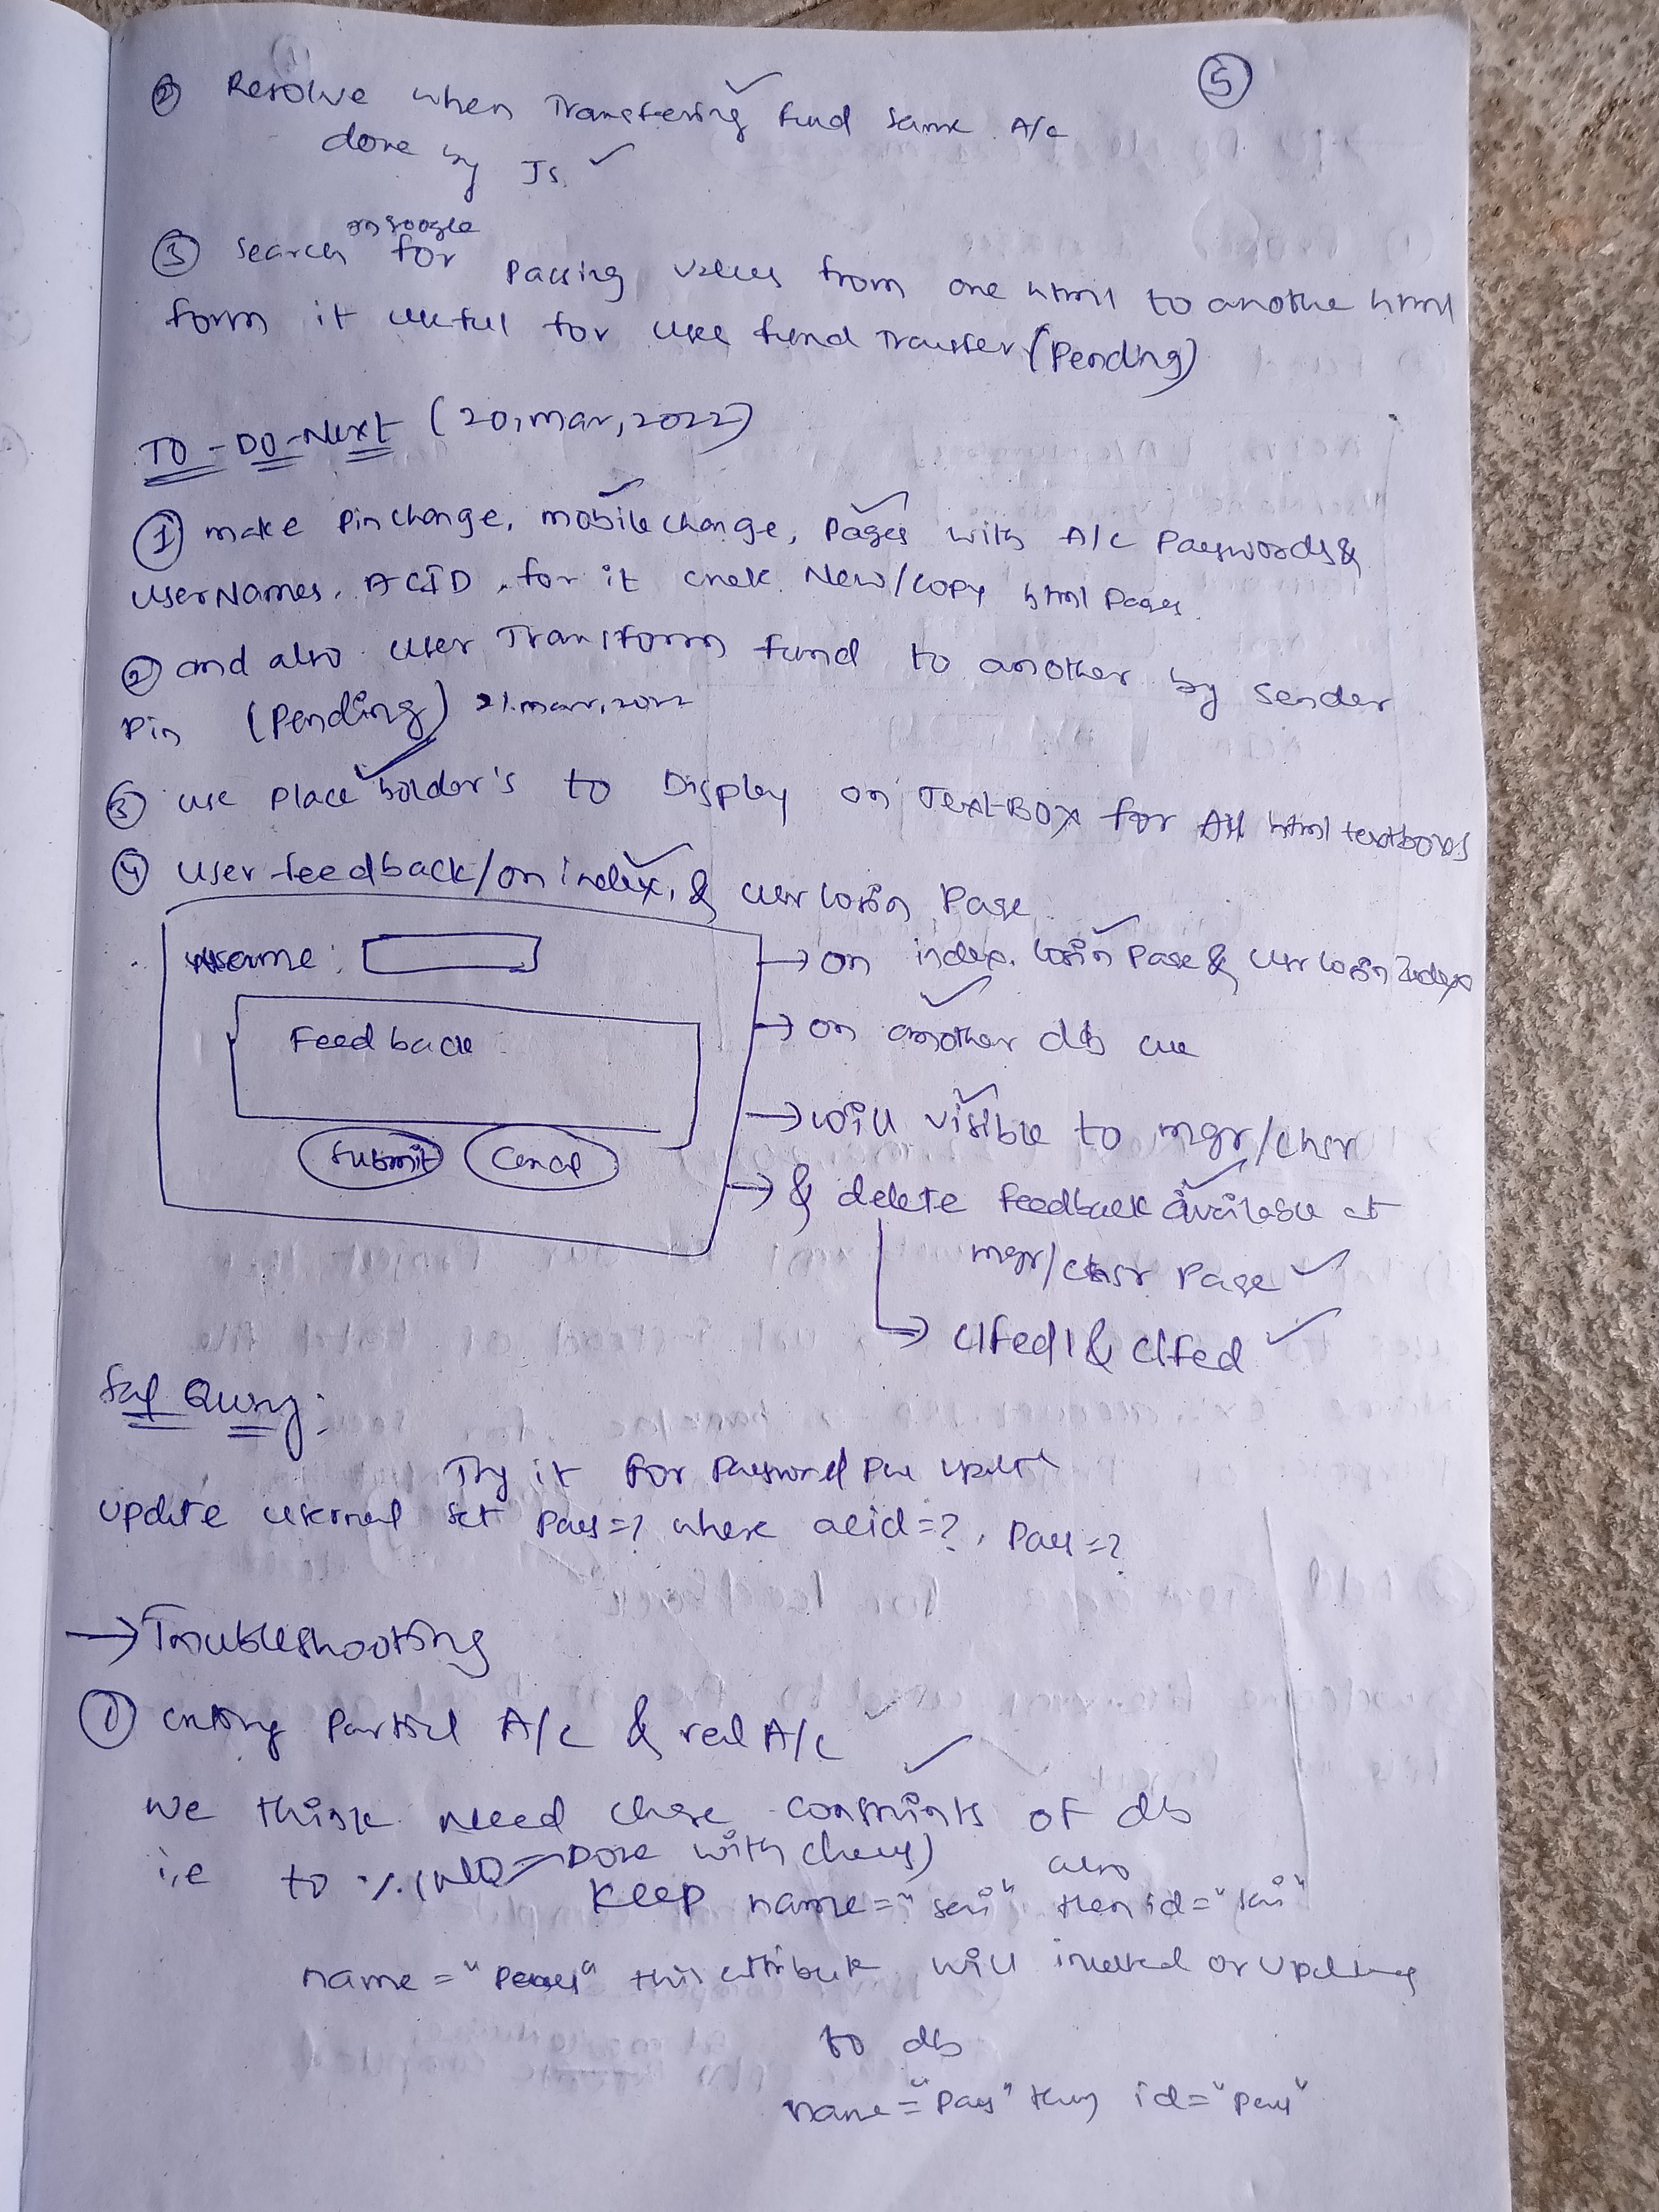 5
② Resolve when Transfering fund same A/c
done by Js.
on google
③ search for passing values from one html to anothe html
form it useful for use fund Transfer (Pending)
TO-DO-Next (20, mar, 2022)
① make Pin change, mobile change, Pages with A/c Passwords &
userNames, ACID, for it New/copy html Pages.
② and also user Transform fund to another by sender
Pin (Pending) 21.mar,2022
③ use place holder's to Display on TextBox for All html textboxes
④ user feedback/on index, & user login Page
username:
→ on index. login Page & user login Index
Feed back
→ on another db use
→ will visible to mgr/chsr
Submit Cancel
→ & delete feedback available at
mgr/chsr Page
→ clfed1 & clfed
Sql Query:
Try it for Password update
update set pass=? where acid=?, pass=?
→ Troubleshooting
① entring Partial A/c & real A/c
we think need constraints of db
i.e to Done with also
Keep name="seni" then id="seni"
name= this attribute will or updating
to db
name="pass" id="pass"